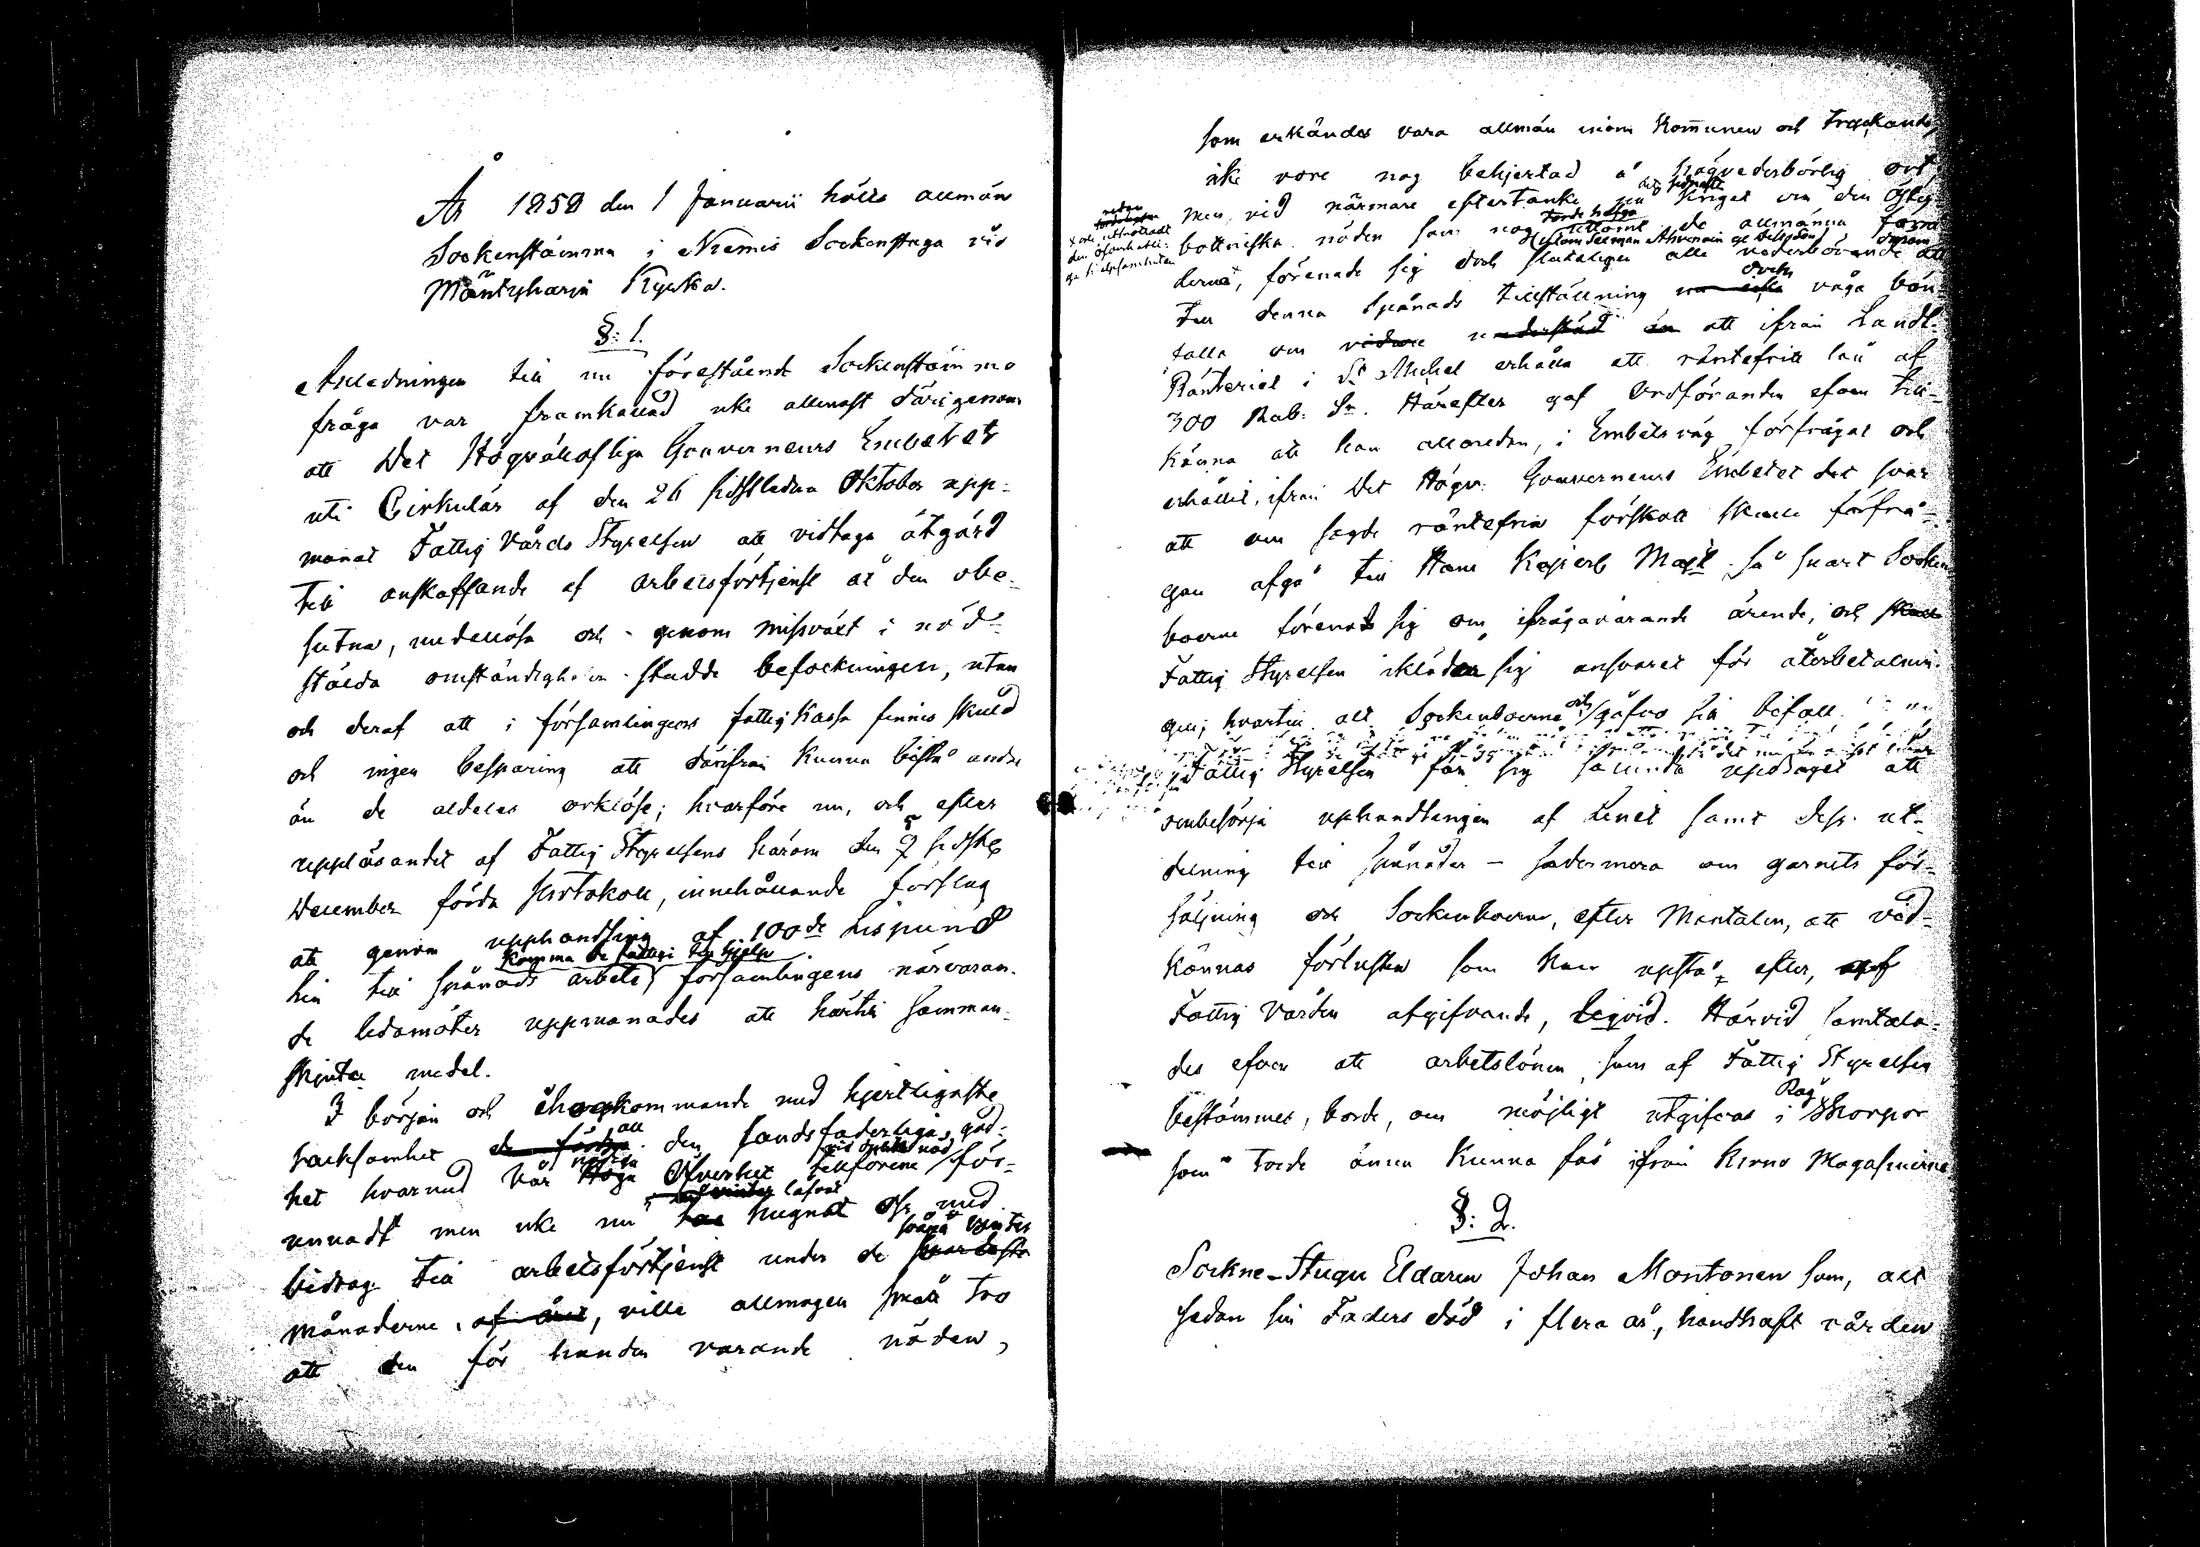 År 1858 den 1 Januarii hölls allmän
Sockenstämma i Niemis Sockenstuga vid
Mäntyharju Kyrka.
§: 1.
Anledningen till nu förestående Sockenstämmo
fråga var framkallad icke allenast därigenom
att Det Högvälloflige Gouverneurs Embetet
uti Cirkulär af den 26 sidstledne Oktober upp-
manat Fattig Vårds Styrelsen att vidtaga åtgärd
till anskaffande af arbetsförtjenst åt den obe-
sutna, medellösa och genom missväxt i nöd-
stälda omständigheter stadde befolkningen, utan
och deraf att i församlingens fattig Kassa finnes skuld
och ingen besparing att därifrån kunna bistå andra
än de aldeles orklöse; hvarföre nu, och efter
uppläsandet af Fattig Styrelsens härom den sidstl.
December förda Protokoll, innehållande förslag
att genom upphandling af 100de Lispund
komma de fattiga till hjelp
lin till spånads arbete församlingens närvaran-
de ledamöter uppmanades att härtill samman-
skjuta medel.
I början och ehågkommande med hjertligaste
tacksamhet all den landsfaderliga god-
vid dylik nöd
het hvarmed Vår Höga Öfverhet tillförene för-
låfvat
unnadt men icke nu hugnat oss med
svåra vinter
bidrag till arbetsförtjenst under de svåraste
månaderne af året, ville allmogen snart tro
att den för handen varande nöden,
som erkändes vara allmän inom Kommunen och tryckande
icke vore nog behjertad å högvederbörlig ort,
men, vid närmare eftertanke kriget om den Öster-
torde hafva
bottniska nöden som nog uttömt de allmänna
derna, förenade sig dock slutligen alle vederbörande att
dock
till denna spånads tillställning våga bön-
falla om att ifrån Landt-
Ränteriet i St Michel erhålla ett räntefritt lån af
300 Rub: Sr. Härefter gaf Ordföranden efven till-
känna att han allaredan, i Embetsväg, förfrågat och
erhållit, ifrån Det Högv. Gouverneurs Embetet det svar
att om sagde räntefria förskott skulle förfrå-
gan afgå till Hans Kejserl Majt. så snart Socken-
boerne förenat sig om ifrågavarande ärende, och
Fattig Styrelsen ikläder sig ansvaret för återbetalnin-
gen; hvartill alt Sockenboerne och gåfvo sin bifall.
Fattig Styrelsen sig sålunda updraget att
ombesörja uphandlingen af Linet samt dess ut-
delning till spånader – sedermera om garnets för-
säljning och Sockenboerne, efter Mantalen, att väd-
kännas förlusten som kan uppstå, efter,
Fattig Vården afgifvande, Liqvid. Härvid samtala-
des efven att arbetslönen, som af Fattig Styrelsen
Råg
bestämmes, borde, om möjligt utgifvas i skorpor
som torde ännu kunna fås ifrån Krono Magasinerne
§: 2.
Sockne-Stugu Eldaren Johan Montonen som, allt
sedan sin Faders död i flera år, handhaft vården